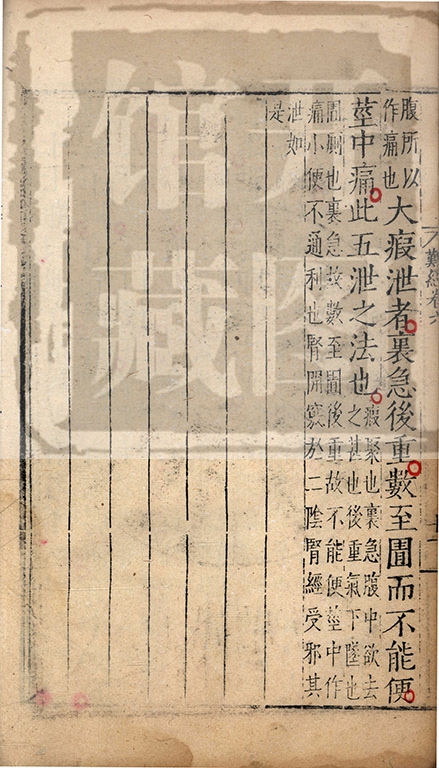 難經卷六
腹所以
作痛也
大瘕泄者裏急後重數至圊而不能便
莖中痛此五泄之法也
瘕聚也裏急腹中欲去
之甚也後重氣下墜也
圊厠也裏急故數至圊後重故不能便莖中作
痛小便不通利也腎開竅於二陰腎經受邪其
泄如
是
館藏